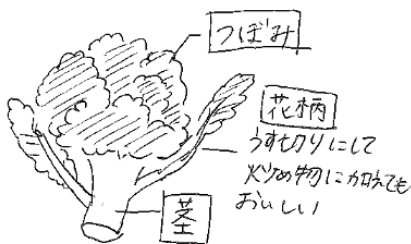 つぼみ
花柄
うす切りにして
炒め物に加えても
おいしい
茎